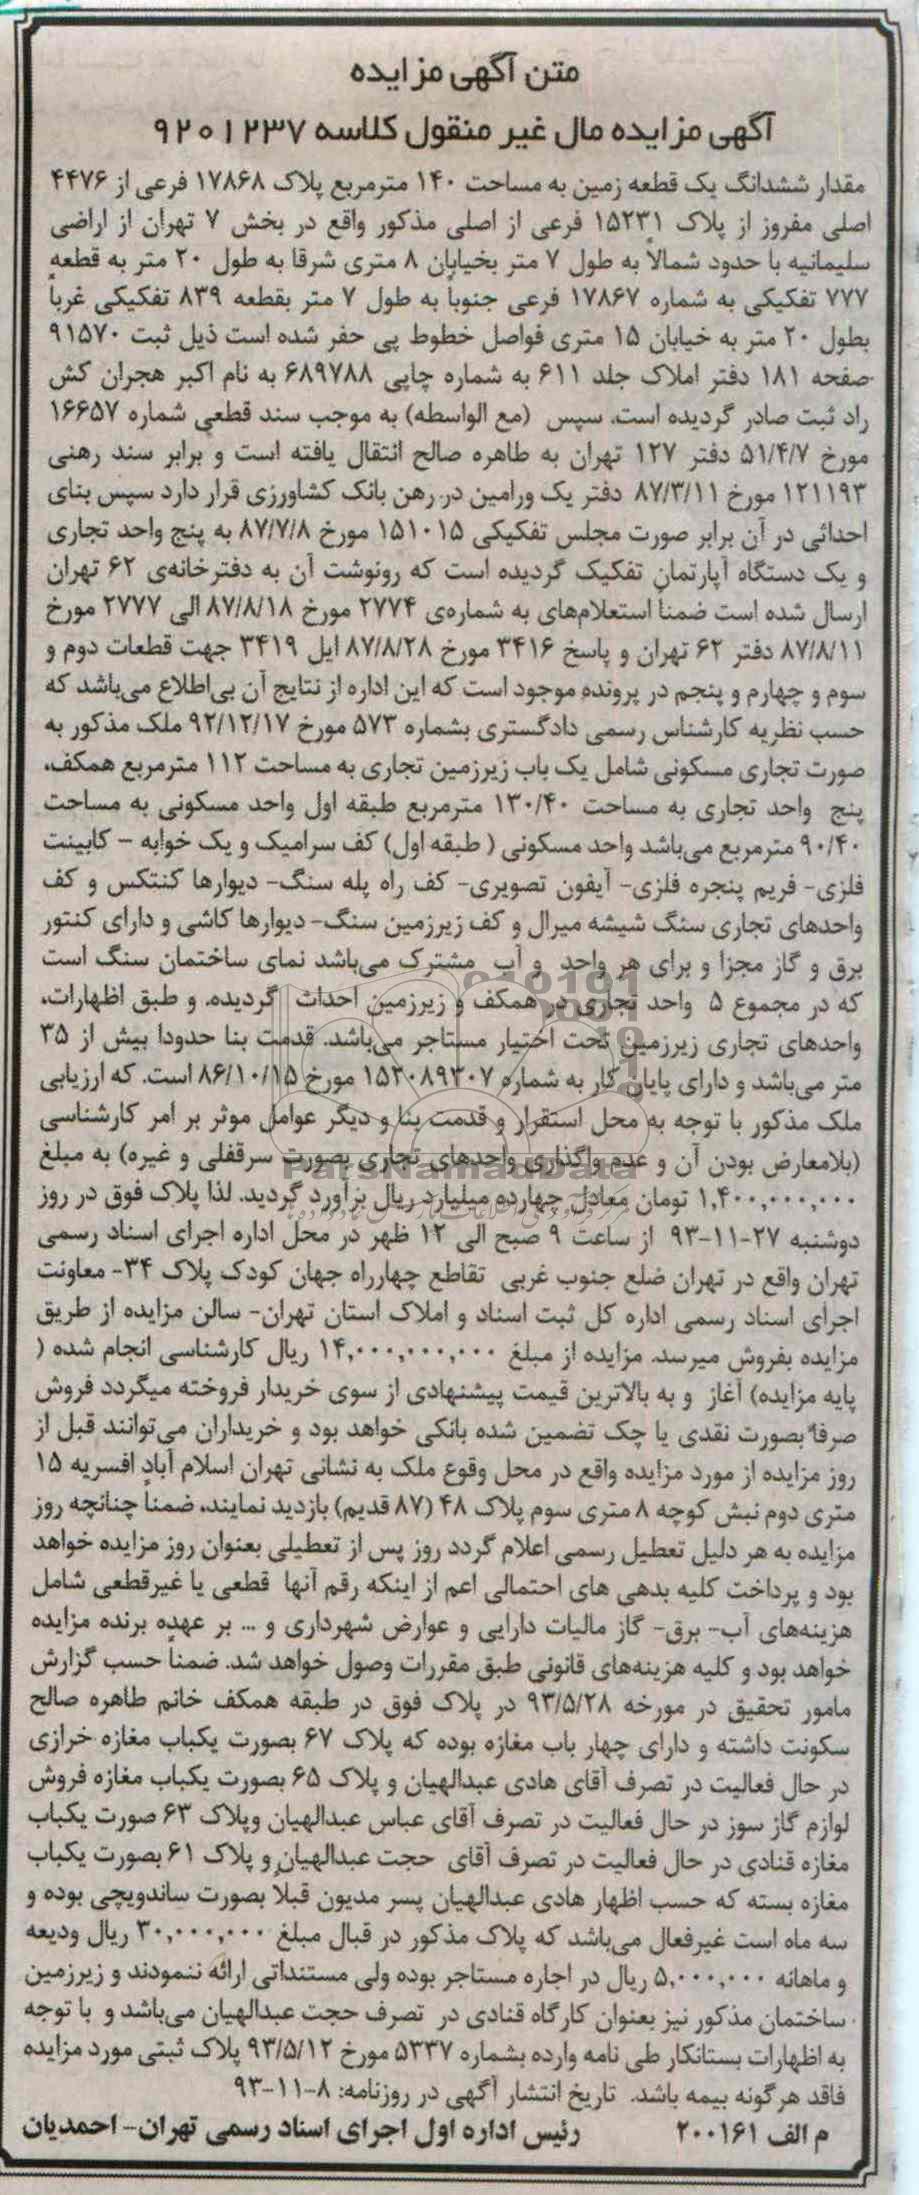 متن آگهی مزایده
آگهی مزایده مال غیر منقول کلاسه ۹۲۰۱۲۳۷
مقدار ششدانگ یک قطعه زمین به مساحت ۱۴۰ مترمربع پلاک ۱۷۸۶۸ فرعی از ۴۴۷۶
اصلی مفروز از پلاک ۱۵۲۳۱ فرعی از اصلی مذکور واقع در بخش ۷ تهران از اراضی
سلیمانیه با حدود شمالاً به طول ۷ متر بخیابان ۸ متری شرقا به طول ۲۰ متر به قطعه
۷۷۷ تفکیکی به شماره ۱۷۸۶۷ فرعی جنوباً به طول ۷ متر بقطعه ۸۳۹ تفکیکی غرباً
بطول ۲۰ متر به خیابان ۱۵ متری فواصل خطوط پی حفر شده است ذیل ثبت ۹۱۵۷۰
صفحه ۱۸۱ دفتر املاک جلد ۶۱۱ به شماره چاپی ۶۸۹۷۸۸ به نام اکبر هجران کش
راد ثبت صادر گردیده است. سپس (مع الواسطه) به موجب سند قطعی شماره ۱۶۶۵۷
مورخ ۵۱/۴/۷ دفتر ۱۲۷ تهران به طاهره صالح انتقال یافته است و برابر سند رهنی
۱۲۱۱۹۳ مورخ ۸۷/۳/۱۱ دفتر یک ورامین در رهن بانک کشاورزی قرار دارد سپس بنای
احداثی در آن برابر صورت مجلس تفکیکی ۱۵۱۰۱۵ مورخ ۸۷/۷/۸ به پنج واحد تجاری
و یک دستگاه آپارتمان تفکیک گردیده است که رونوشت آن به دفترخانه‌ی ۶۲ تهران
ارسال شده است ضمناً استعلام‌های به شماره‌ی ۲۷۷۴ مورخ ۸۷/۸/۱۸ الی ۲۷۷۷ مورخ
۸۷/۸/۱۱ دفتر ۶۲ تهران و پاسخ ۳۴۱۶ مورخ ۸۷/۸/۲۸ ایل ۳۴۱۹ جهت قطعات دوم و
سوم و چهارم و پنجم در پرونده موجود است که این اداره از نتایج آن بی‌اطلاع می‌باشد که
حسب نظریه کارشناس رسمی دادگستری بشماره ۵۷۳ مورخ ۹۲/۱۲/۱۷ ملک مذکور به
صورت تجاری مسکونی شامل یک باب زیرزمین تجاری به مساحت ۱۱۲ مترمربع همکف،
پنج واحد تجاری به مساحت ۱۳۰/۴۰ مترمربع طبقه اول واحد مسکونی به مساحت
۹۰/۴۰ مترمربع می‌باشد واحد مسکونی ( طبقه اول) کف سرامیک و یک خوابه – کابینت
فلزی- فریم پنجره فلزی- آیفون تصویری- کف راه پله سنگ- دیوارها کنتکس و کف
واحدهای تجاری سنگ شیشه میرال و کف زیرزمین سنگ- دیوارها کاشی و دارای کنتور
برق و گاز مجزا و برای هر واحد و آب مشترک می‌باشد نمای ساختمان سنگ است
که در مجموع ۵ واحد تجاری در همکف و زیرزمین احداث گردیده. و طبق اظهارات،
واحدهای تجاری زیرزمین تحت اختیار مستاجر می‌باشد. قدمت بنا حدودا بیش از ۳۵
متر می‌باشد و دارای پایان کار به شماره ۱۵۳۰۸۹۳۰۷ مورخ ۸۶/۱۰/۱۵ است. که ارزیابی
ملک مذکور با توجه به محل استقرار و قدمت بنا و دیگر عوامل موثر بر امر کارشناسی
(بلامعارض بودن آن و عدم واگذاری واحدهای تجاری بصورت سرقفلی و غیره) به مبلغ
۱,۴۰۰,۰۰۰,۰۰۰ تومان معادل چهارده میلیارد ریال برآورد گردید. لذا پلاک فوق در روز
دوشنبه ۲۷-۱۱-۹۳ از ساعت ۹ صبح الی ۱۲ ظهر در محل اداره اجرای اسناد رسمی
تهران واقع در تهران ضلع جنوب غربی تقاطع چهارراه جهان کودک پلاک ۳۴- معاونت
اجرای اسناد رسمی اداره کل ثبت اسناد و املاک استان تهران- سالن مزایده از طریق
مزایده بفروش میرسد. مزایده از مبلغ ۱۴,۰۰۰,۰۰۰,۰۰۰ ریال کارشناسی انجام شده (
پایه مزایده) آغاز و به بالاترین قیمت پیشنهادی از سوی خریدار فروخته میگردد فروش
صرفاً بصورت نقدی یا چک تضمین شده بانکی خواهد بود و خریداران می‌توانند قبل از
روز مزایده از مورد مزایده واقع در محل وقوع ملک به نشانی تهران اسلام آباد افسریه ۱۵
متری دوم نبش کوچه ۸ متری سوم پلاک ۴۸ (۸۷ قدیم) بازدید نمایند. ضمناً چنانچه روز
مزایده به هر دلیل تعطیل رسمی اعلام گردد روز پس از تعطیلی بعنوان روز مزایده خواهد
بود و پرداخت کلیه بدهی های احتمالی اعم از اینکه رقم آنها قطعی یا غیرقطعی شامل
هزینه‌های آب- برق- گاز مالیات دارایی و عوارض شهرداری و ... بر عهده برنده مزایده
خواهد بود و کلیه هزینه‌های قانونی طبق مقررات وصول خواهد شد. ضمناً حسب گزارش
مامور تحقیق در مورخه ۹۳/۵/۲۸ در پلاک فوق در طبقه همکف خانم طاهره صالح
سکونت داشته و دارای چهار باب مغازه بوده که پلاک ۶۷ بصورت یکباب مغازه خرازی
در حال فعالیت در تصرف آقای هادی عبدالهیان و پلاک ۶۵ بصورت یکباب مغازه فروش
لوازم گاز سوز در حال فعالیت در تصرف آقای عباس عبدالهیان وپلاک ۶۳ صورت یکباب
مغازه قنادی در حال فعالیت در تصرف آقای حجت عبدالهیان و پلاک ۶۱ بصورت یکباب
مغازه بسته که حسب اظهار هادی عبدالهیان پسر مدیون قبلاً بصورت ساندویچی بوده و
سه ماه است غیرفعال می‌باشد که پلاک مذکور در قبال مبلغ ۳۰,۰۰۰,۰۰۰ ریال ودیعه
و ماهانه ۵,۰۰۰,۰۰۰ ریال در اجاره مستاجر بوده ولی مستنداتی ارائه ننمودند و زیرزمین
ساختمان مذکور نیز بعنوان کارگاه قنادی در تصرف حجت عبدالهیان می‌باشد و با توجه
به اظهارات بستانکار طی نامه وارده بشماره ۵۳۳۷ مورخ ۹۳/۵/۱۲ پلاک ثبتی مورد مزایده
فاقد هرگونه بیمه باشد. تاریخ انتشار آگهی در روزنامه: ۸-۱۱-۹۳
م الف ۲۰۰۱۶۱ رئیس اداره اول اجرای اسناد رسمی تهران- احمدیان
ParsNamadData